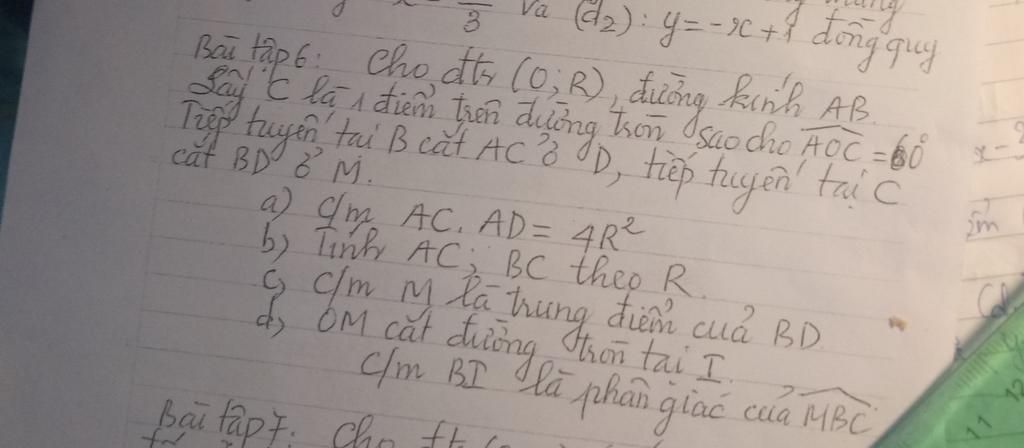 3 Và (d₂): y = -x + 1 đồng quy
Bài tập 6: Cho đtr (O; R), đường kính AB.
Lấy C là 1 điểm trên đường tròn sao cho AOC = 60°
Tiếp tuyến tại B cắt AC ở D, tiếp tuyến tại C
cắt BD ở M.
a) C/m AC. AD = 4R²
b) Tính AC; BC theo R.
c) C/m M là trung điểm của BD
d) OM cắt đường tròn tại I.
C/m BI là phân giác của MBC
Bài tập 7: Cho